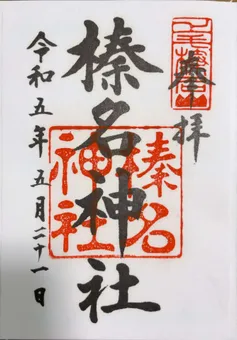 奉拝
榛名神社
令和五年五月二十一日
榛名
神社